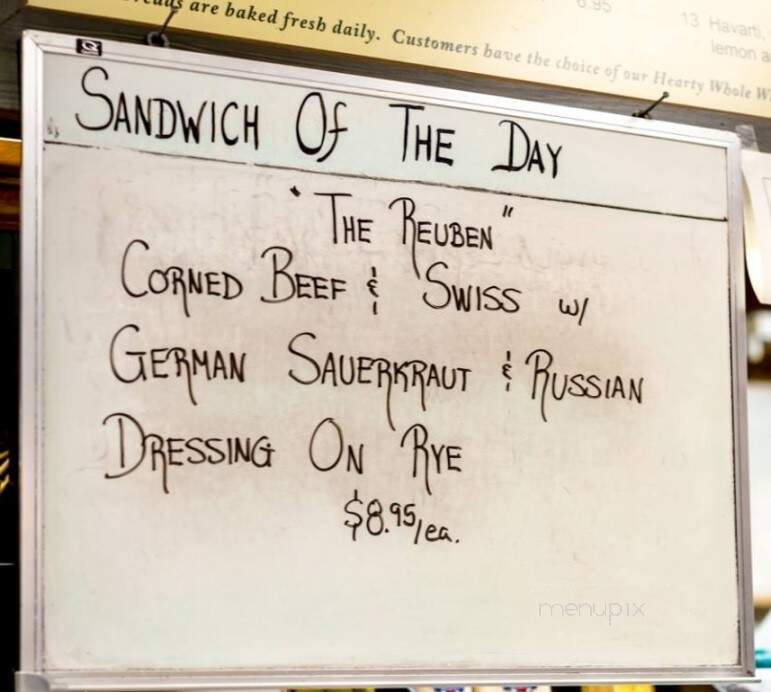 are baked fresh daily. Customers have the choice of our Hearty Whole
6.95
13 Havarti,
lemon
SANDWICH OF THE DAY
"THE REUBEN"
CORNED BEEF & SWISS w/
GERMAN SAUERKRAUT & RUSSIAN
DRESSING ON RYE
$8.95/ea.
menupix